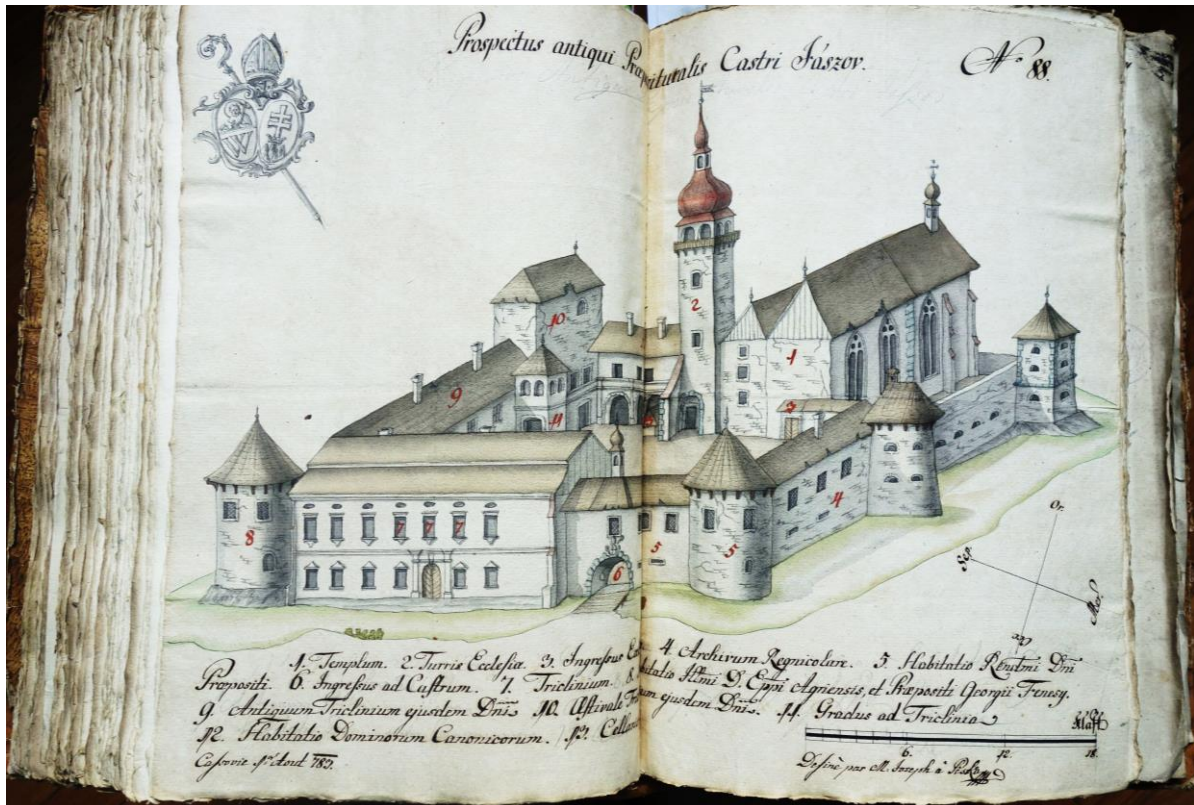 Prospectus antiqui Præpituralis Castri Jászov.
Nº 88.
10
2
1
9
11
3
4
8
7 7 7
5
5
6
Or.
Sep.
Mer.
Occ
1. Templum. 2. Turris Ecclesiæ. 3. Ingressus 4. Archivum Regnicolare. 5. Habitatio Rndmi Dni
Præpositi. 6. Ingressus ad Castrum. 7. Triclinium. 8. Habitatio Illmi D. Eppi Agriensis, et Præpositi Georgii Fenesy.
9. Antiquum Triclinium ejusdem Dni. 10. Æstivale ejusdem Dni. 11. Gradus ad Triclinia
12. Habitatio Dominorum Canonicorum. 13.
Klaft
6. 12. 18.
Cassovie Aout 783.
Desiné par M. Joseph à